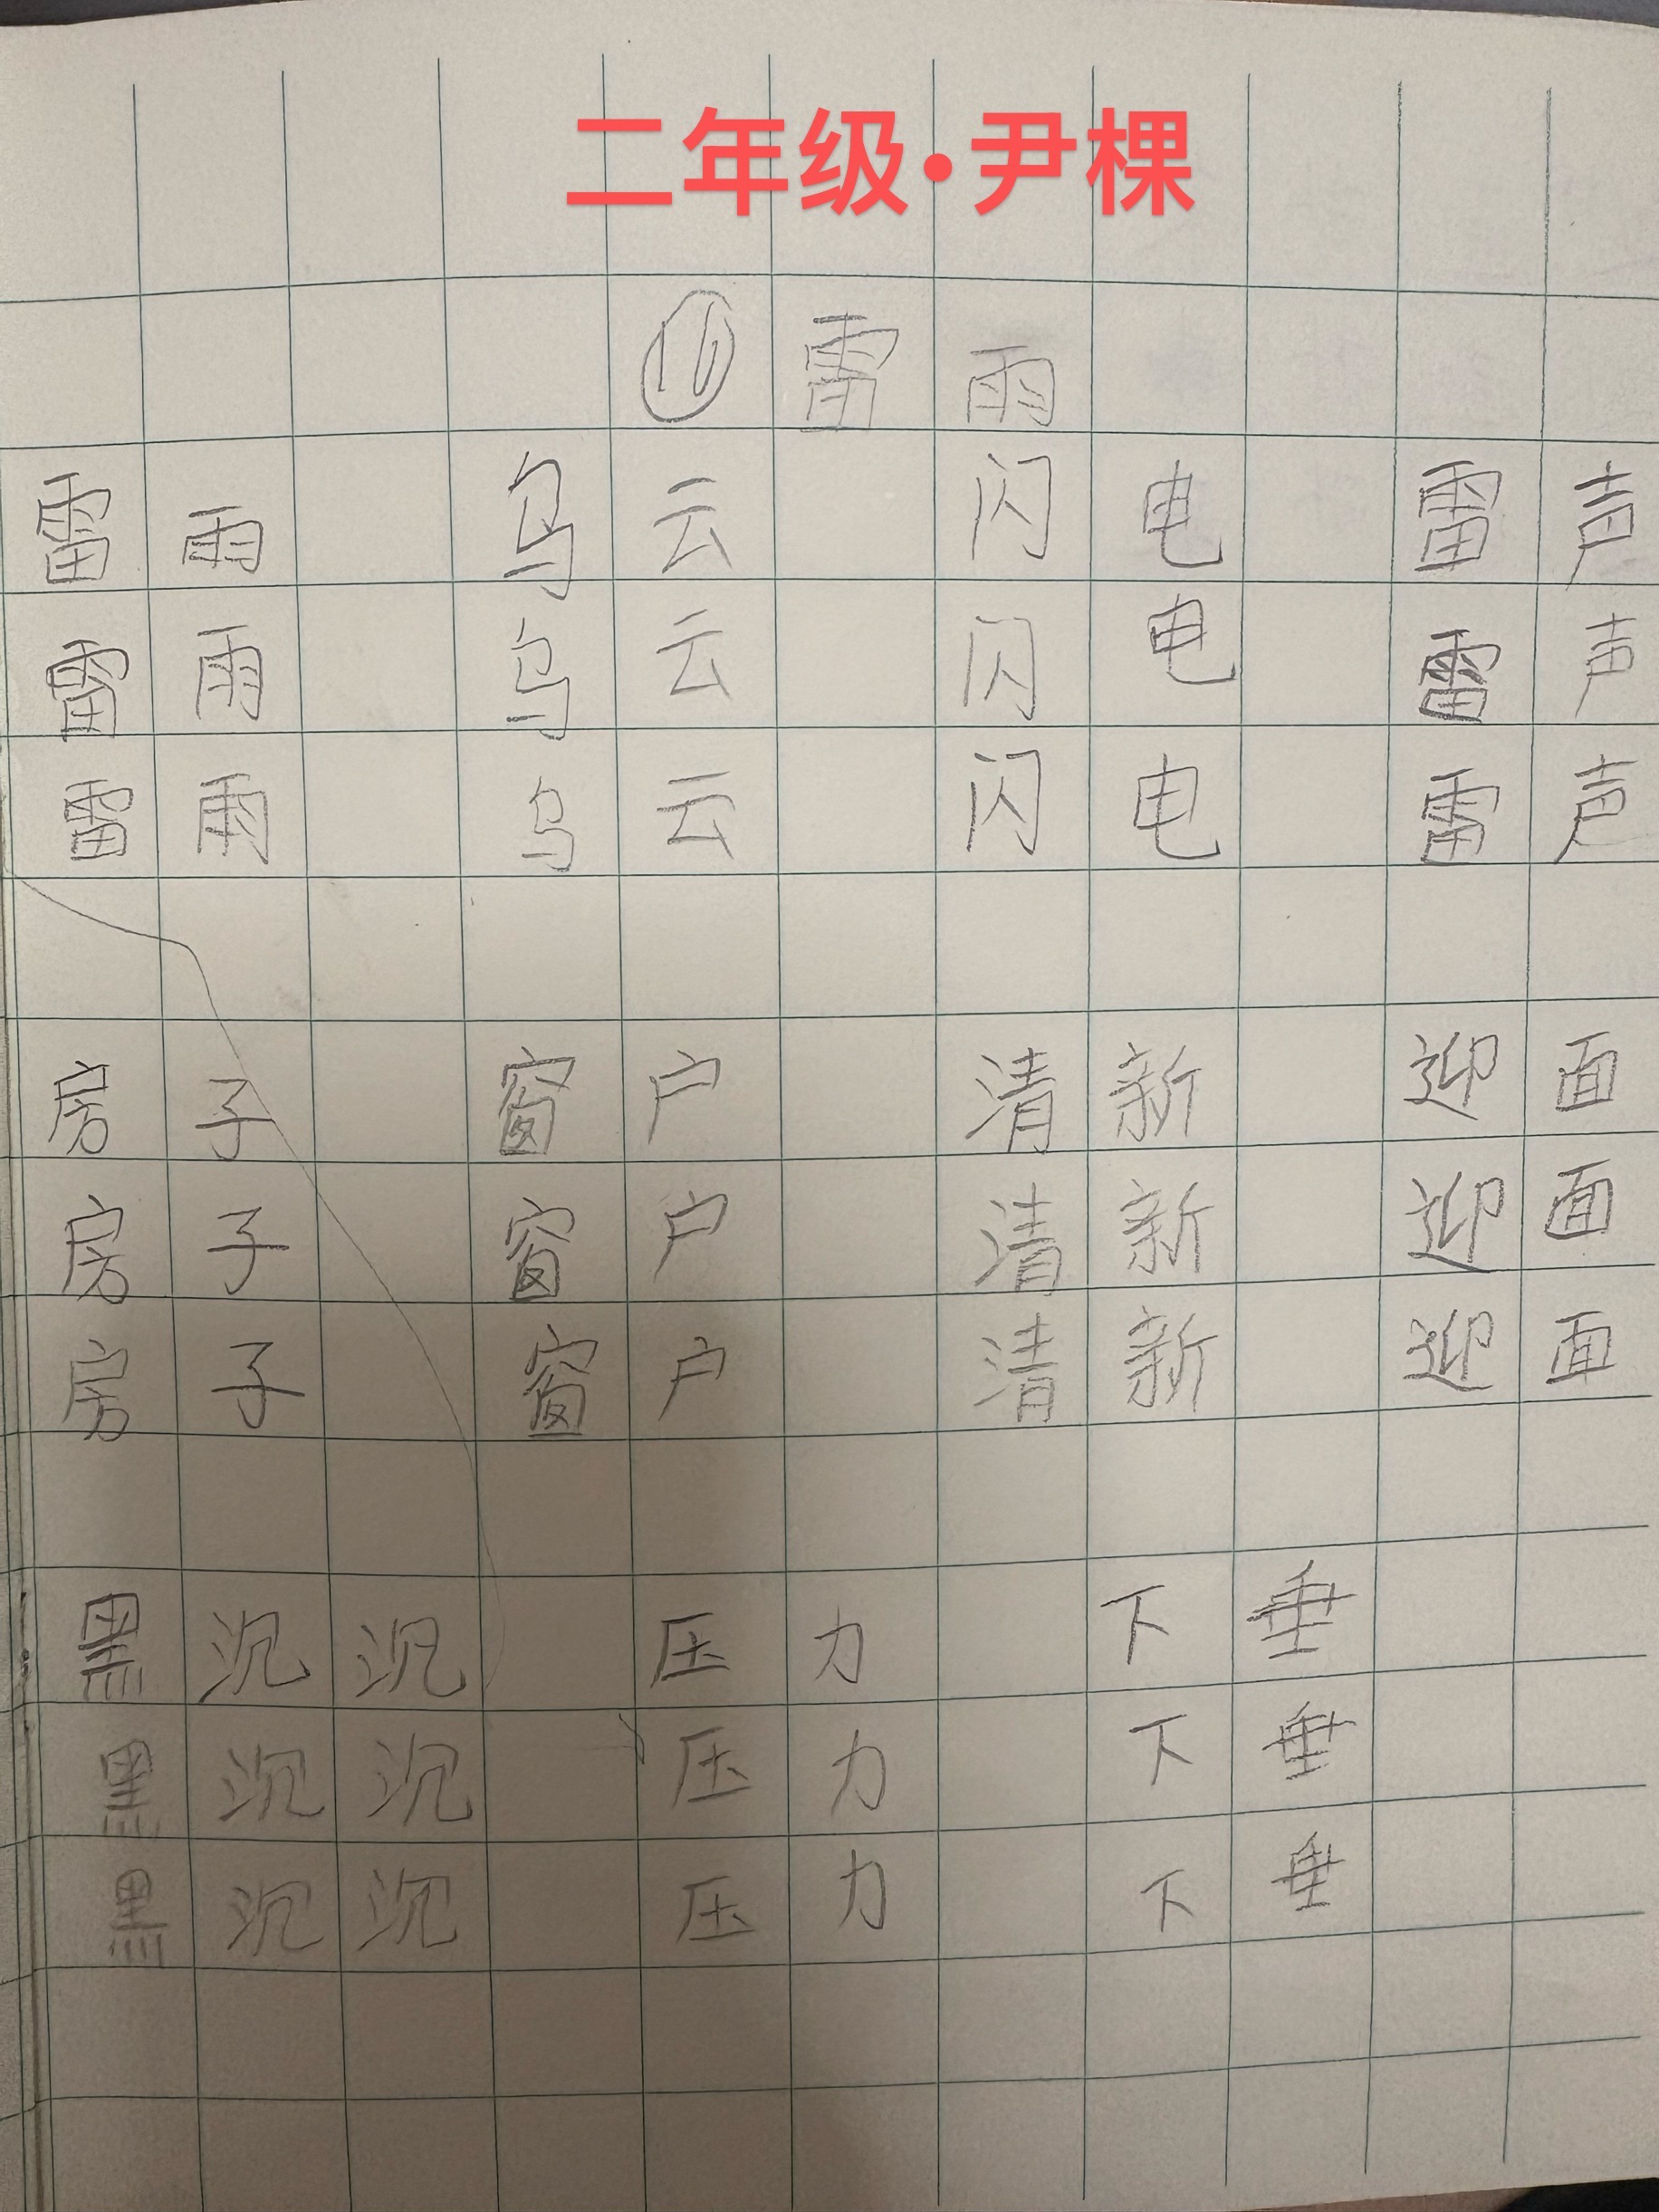 二年级·尹棵
⑯雷雨
雷雨 乌云 闪电 雷声
雷雨 乌云 闪电 雷声
雷雨 乌云 闪电 雷声
房子 窗户 清新 迎面
房子 窗户 清新 迎面
房子 窗户 清新 迎面
黑沉沉 压力 下垂
黑沉沉 压力 下垂
黑沉沉 压力 下垂